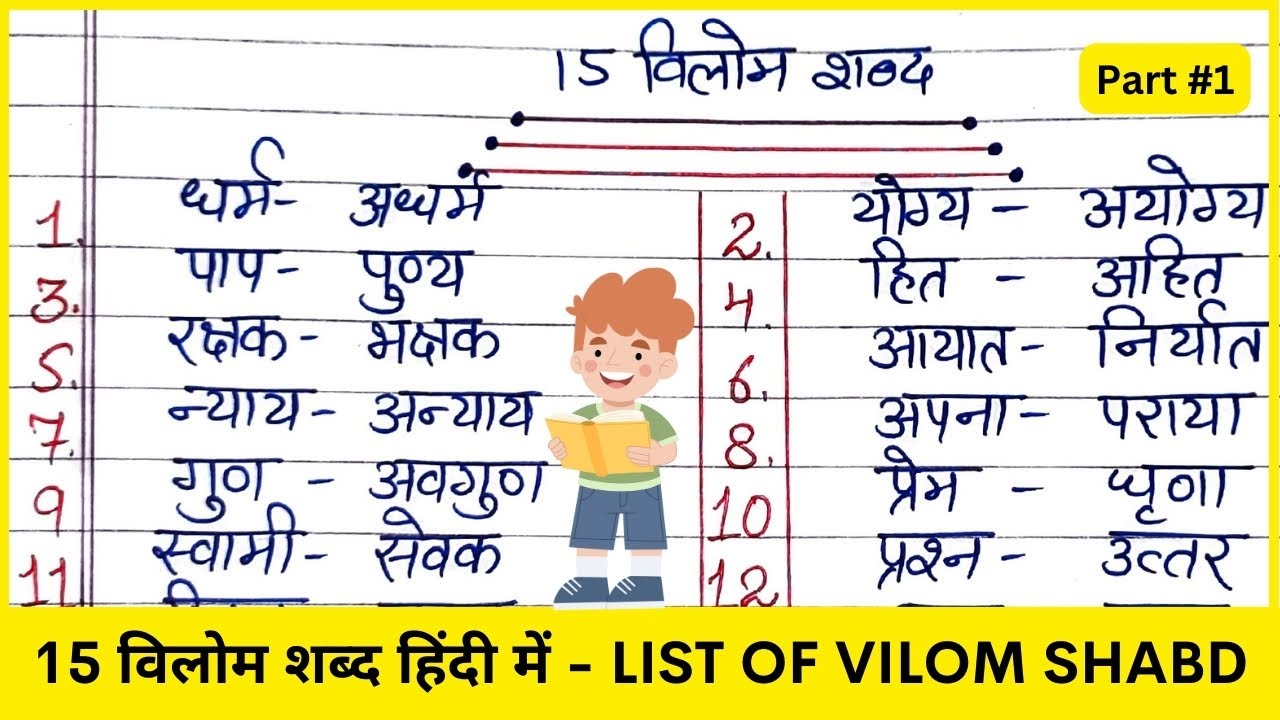 15 विलोम शब्द
Part #1
1. धर्म - अधर्म
2. योग्य - अयोग्य
3. पाप - पुण्य
4. हित - अहित
5. रक्षक - भक्षक
6. आयात - निर्यात
7. न्याय - अन्याय
8. अपना - पराया
9 गुण - अवगुण
10 प्रेम - घृणा
11 स्वामी - सेवक
12 प्रश्न - उत्तर
15 विलोम शब्द हिंदी में - LIST OF VILOM SHABD